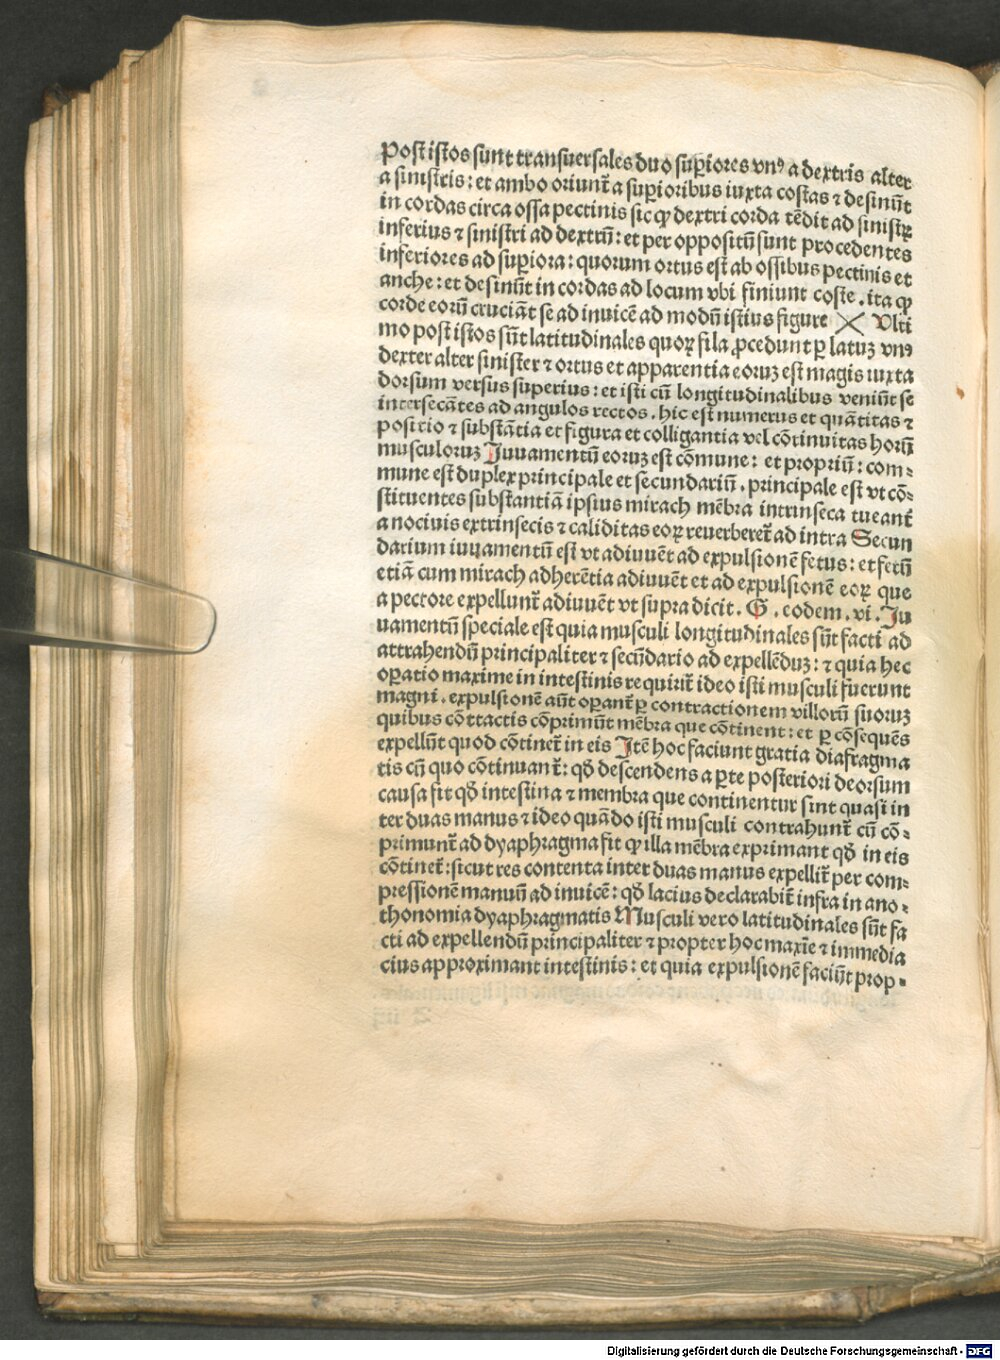 Post istos sunt transuersales duo sup̱iores vnꝰ a dextris alter
a sinistris: et ambo oriunt̃ a sup̱ioribus iuxta costas ⁊ desinũt
in cordas circa ossa pectinis sic ꝙ dextri corda tẽdit ad sinistꝝ
inferius ⁊ sinistri ad dextrũ: et per oppositũ sunt procedentes
inferiores ad sup̱iora: quorum ortus est ab ossibus pectinis et
anche: et desinũt in cordas ad locum vbi finiunt coste. ita ꝙ
corde eorũ cruciãt se ad inuicẽ ad modũ istius figure ╳ Vlti
mo post istos sũt latitudinales quoꝝ fila ꝓcedunt ꝑ latuꝫ vnꝰ
dexter alter sinister ⁊ ortus et apparentia eoruꝫ est magis iuxta
dorsum versus superius: et isti cũ longitudinalibus veniũt se
intersecãtes ad angulos rectos. hic est numerus et quãtitas ⁊
positio ⁊ substãtia et figura et colligantia vel cõtinuitas horũ
musculoruꝫ Juuamentũ eoruꝫ est cõmune: et propriũ: com⸗
mune est duplex principale et secundariũ. principale est vt cõ⸗
stituentes substantiã ipsius mirach mẽbra intrinseca tueant̃
a nociuis extrinsecis ⁊ caliditas eoꝝ reuerberet̃ ad intra Secun
darium iuuamentũ est vt adiuuẽt ad expulsionẽ fetus: et fetũ
etiã cum mirach adherẽtia adiuuẽt et ad expulsionẽ eoꝝ que
a pectore expellunt̃ adiuuẽt vt supra dicit. G. eodem. vi. Ju
uamentũ speciale est quia musculi longitudinales sũt facti ad
attrahendũ principaliter ⁊ secũdario ad expellẽduꝫ: ⁊ quia hec
op̱atio maxime in intestinis requirit̃ ideo isti musculi fuerunt
magni. expulsionẽ aũt op̱ant̃ ꝑ contractionem villorũ suoruꝫ
quibus cõttactis cõprimũt mẽbra que cõtinent: et ꝑ cõsequẽs
expellũt quod cõtinet̃ in eis Itẽ hoc faciunt gratia diafragma
tis cũ quo cõtinuant̃: qð descendens a ꝑte posteriori deorsum
causa fit qð intestina ⁊ membra que continentur sint quasi in
ter duas manus ⁊ ideo quãdo isti musculi contrahunt̃ cũ cõ⸗
primunt̃ ad dyaphragma fit ꝙ illa mẽbra exprimant qð in eis
cõtinet̃: sicut res contenta inter duas manus expellit̃ per com⸗
pressionẽ manuũ ad inuicẽ: qð lacius declarabit̃ infra in ano⸗
thonomia dyaphragmatis Musculi vero latitudinales sũt fa
cti ad expellendũ principaliter ⁊ propter hoc maxĩe ⁊ immedia
cius approximant intestinis: et quia expulsionẽ faciũt prop⸗
Digitalisierung gefördert durch die Deutsche Forschungsgemeinschaft - DFG